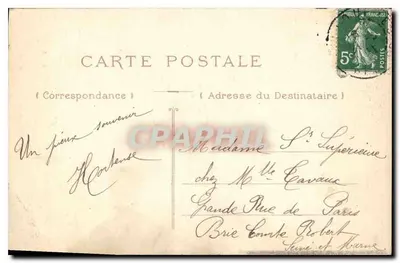 CARTE POSTALE
(Correspondance)
(Adresse du Destinataire)
Un pieux souvenir
Hortense
Madame Sr Supérieure
chez Mlle Tavaux
Grande Rue de Paris
Brie Comte Robert
Seine et Marne
5c
POSTES
CPAPHIL